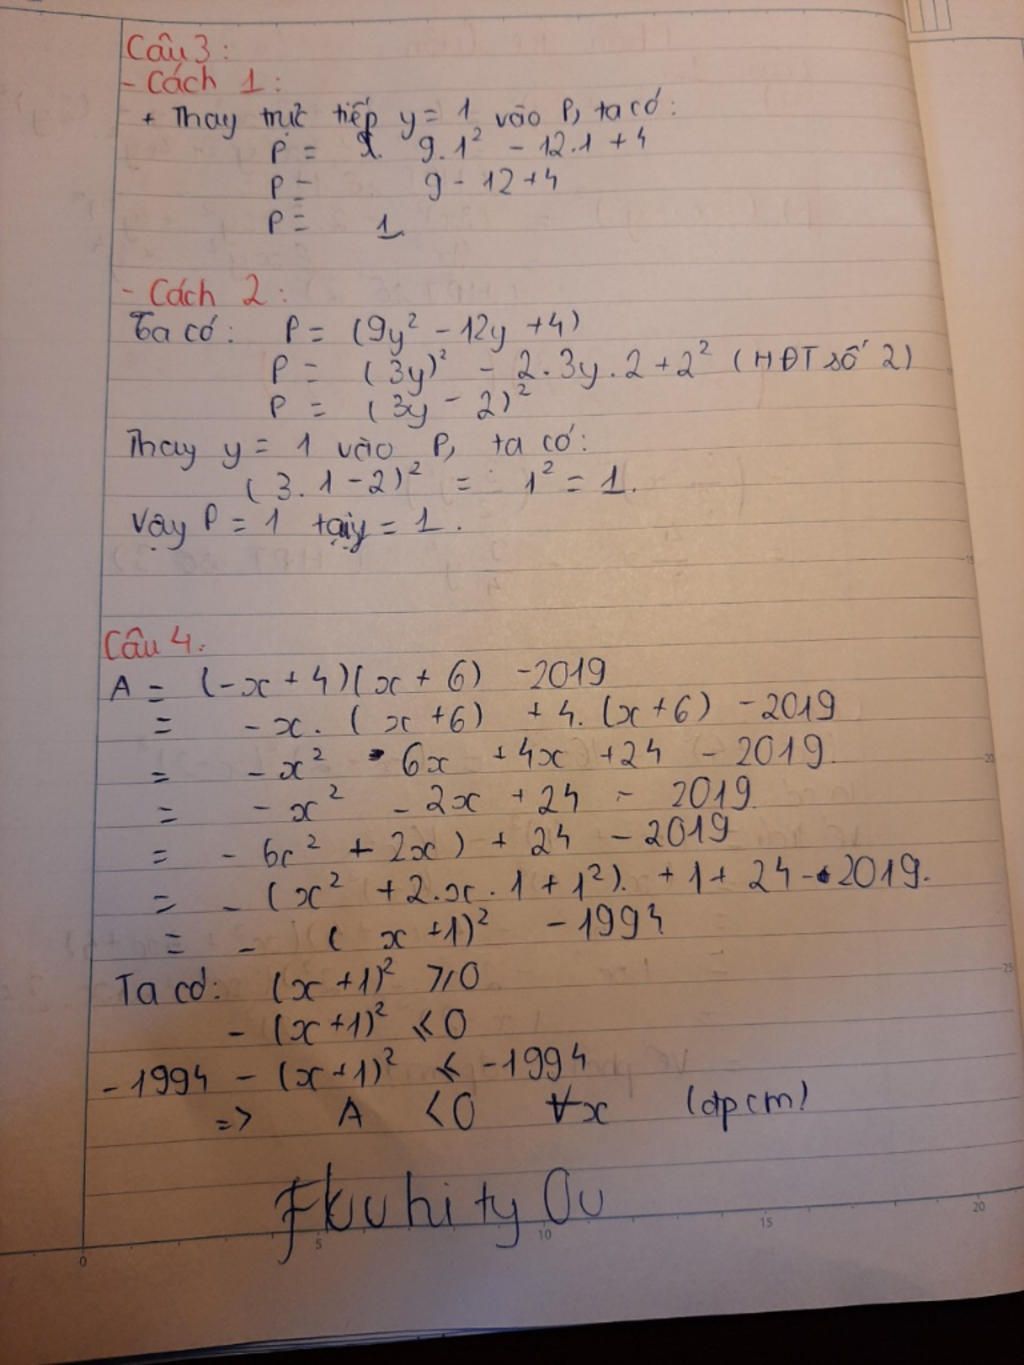 Câu 3:
- Cách 1:
+ Thay trực tiếp y = 1 vào P, ta có:
P = 9.1² - 12.1 + 4
P = 9 - 12 + 4
P = 1
- Cách 2:
Ta có: P = (9y² - 12y + 4)
P = (3y)² - 2.3y.2 + 2² (HĐT số 2)
P = (3y - 2)²
Thay y = 1 vào P, ta có:
(3.1-2)² = 1² = 1.
Vậy P = 1 tại y = 1.
Câu 4:
A = (-x + 4)(x + 6) - 2019
= -x. (x+6) + 4. (x+6) - 2019
= -x² - 6x + 4x + 24 - 2019.
= -x² - 2x + 24 - 2019.
= - (x² + 2x) + 24 - 2019
= - (x² + 2.x.1 + 1²). + 1 + 24 - 2019.
= - (x+1)² - 1994
Ta có: (x+1)² ⩾ 0
- (x+1)² ⩽ 0
-1994 - (x+1)² ⩽ -1994
=> A < 0 ∀x (đpcm)
5 10 15 20
0
15
20
25